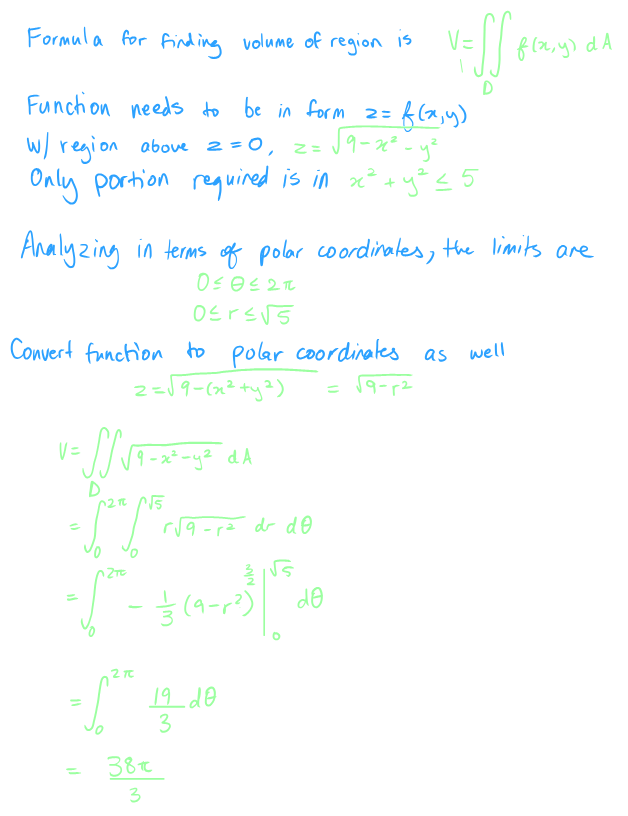 Formula for finding volume of region is V = ∬_D f(x,y) dA
Function needs to be in form z = f(x,y)
w/ region above z = 0, z = √(9 - x² - y²)
Only portion required is in x² + y² ≤ 5
Analyzing in terms of polar coordinates, the limits are
0 ≤ θ ≤ 2π
0 ≤ r ≤ √5
Convert function to polar coordinates as well
z = √(9 - (x² + y²)) = √(9 - r²)
V = ∬_D √(9 - x² - y²) dA
= ∫_0^{2π} ∫_0^{√5} r√(9 - r²) dr dθ
= ∫_0^{2π} - 1/3 (9 - r²)^{3/2} |_0^{√5} dθ
= ∫_0^{2π} 19/3 dθ
= 38π/3